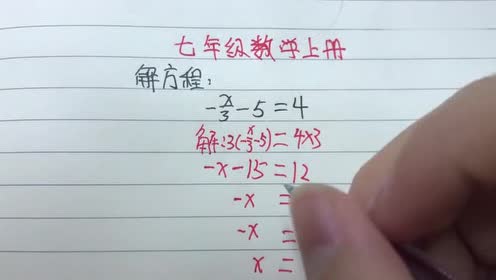 七年级数学上册
解方程:
-x/3-5=4
解:3(-x/3-5)=4×3
-x-15=12
-x =
-x =
x =